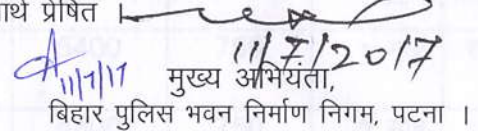 नार्थ प्रेषित ।
11/7/2017
11/7/17 मुख्य अभियंता,
बिहार पुलिस भवन निर्माण निगम, पटना ।